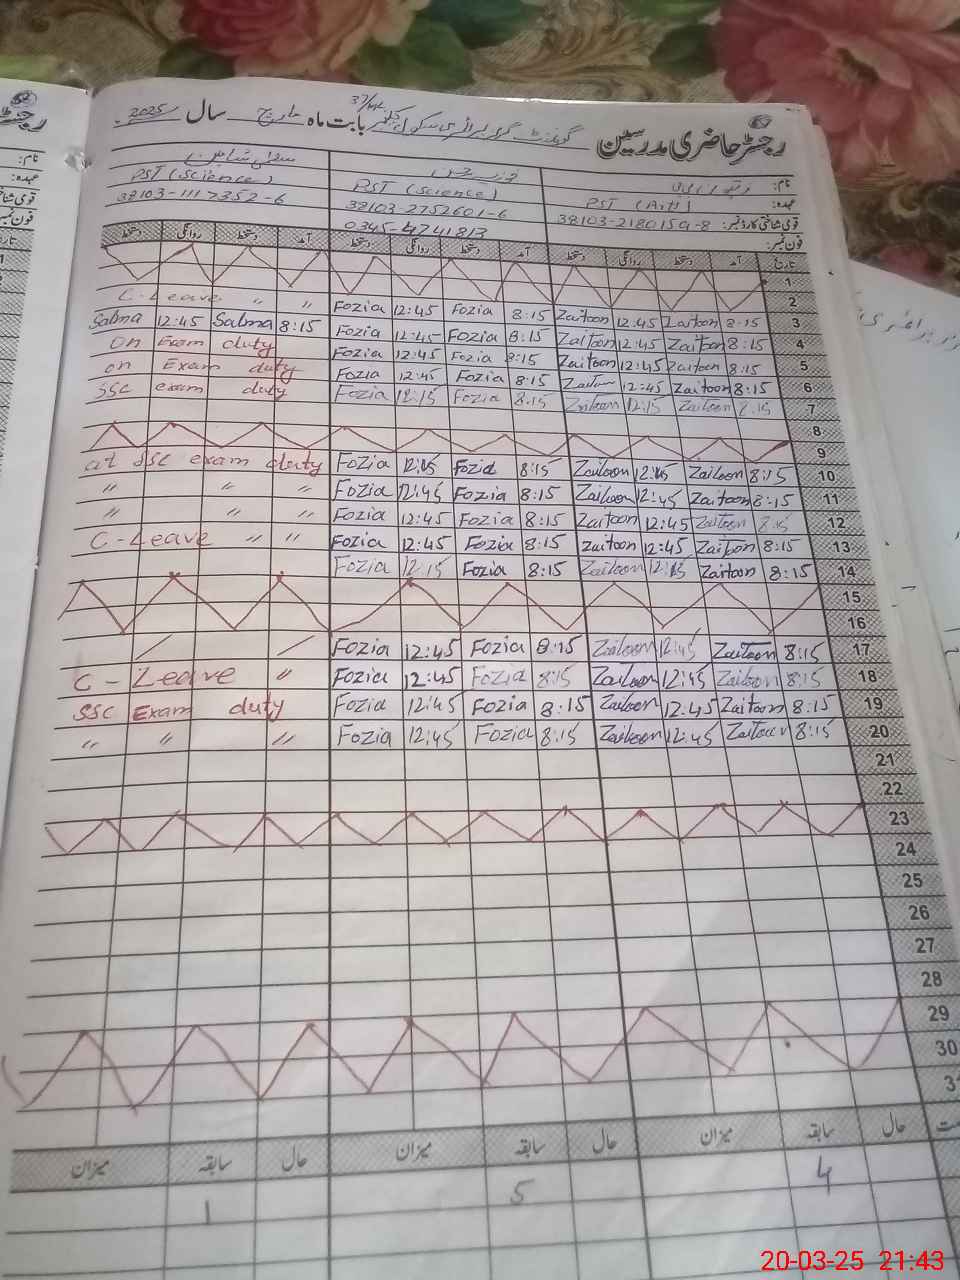 رجسٹر حاضری مدرسین گورنمنٹ گرلز پرائمری سکول 37/ML بابت ماہ مارچ سال 2025
نام:
عہدہ: PST (Arts) PST (Science) PST (Science)
قومی شناختی کارڈ نمبر: 38103-2180159-8 38103-2752601-6 38103-1117352-6
فون نمبر: 0345-4741813
تاریخ آمد دستخط روانگی دستخط آمد دستخط روانگی دستخط آمد دستخط روانگی دستخط
1
2
C-Leave " " Fozia 12:45 Fozia 8:15 Zaitoon 12:45 Zaitoon 8:15 3
Salma 12:45 Salma 8:15 Fozia 12:45 Fozia 8:15 Zaitoon 12:45 Zaitoon 8:15 4
On Exam duty Fozia 12:45 Fozia 8:15 Zaitoon 12:45 Zaitoon 8:15 5
on Exam duty Fozia 12:45 Fozia 8:15 Zaitoon 12:45 Zaitoon 8:15 6
SSC exam duty Fozia 12:15 Fozia 8:15 Zaitoon 12:15 Zaitoon 8:15 7
8
9
at SSC exam duty Fozia 12:45 Fozia 8:15 Zaitoon 12:45 Zaitoon 8:15 10
" " " Fozia 12:45 Fozia 8:15 Zaitoon 12:45 Zaitoon 8:15 11
" " " Fozia 12:45 Fozia 8:15 Zaitoon 12:45 Zaitoon 8:15 12
C-Leave " " Fozia 12:45 Fozia 8:15 Zaitoon 12:45 Zaitoon 8:15 13
Fozia 12:15 Fozia 8:15 Zaitoon 12:15 Zaitoon 8:15 14
15
16
Fozia 12:45 Fozia 8:15 Zaitoon 12:45 Zaitoon 8:15 17
C-Leave " Fozia 12:45 Fozia 8:15 Zaitoon 12:45 Zaitoon 8:15 18
SSC Exam duty Fozia 12:45 Fozia 8:15 Zaitoon 12:45 Zaitoon 8:15 19
" " " Fozia 12:45 Fozia 8:15 Zaitoon 12:45 Zaitoon 8:15 20
21
22
23
24
25
26
27
28
29
30
31
حال سابقہ میزان حال سابقہ میزان حال سابقہ میزان
4 5 1
20-03-25 21:43